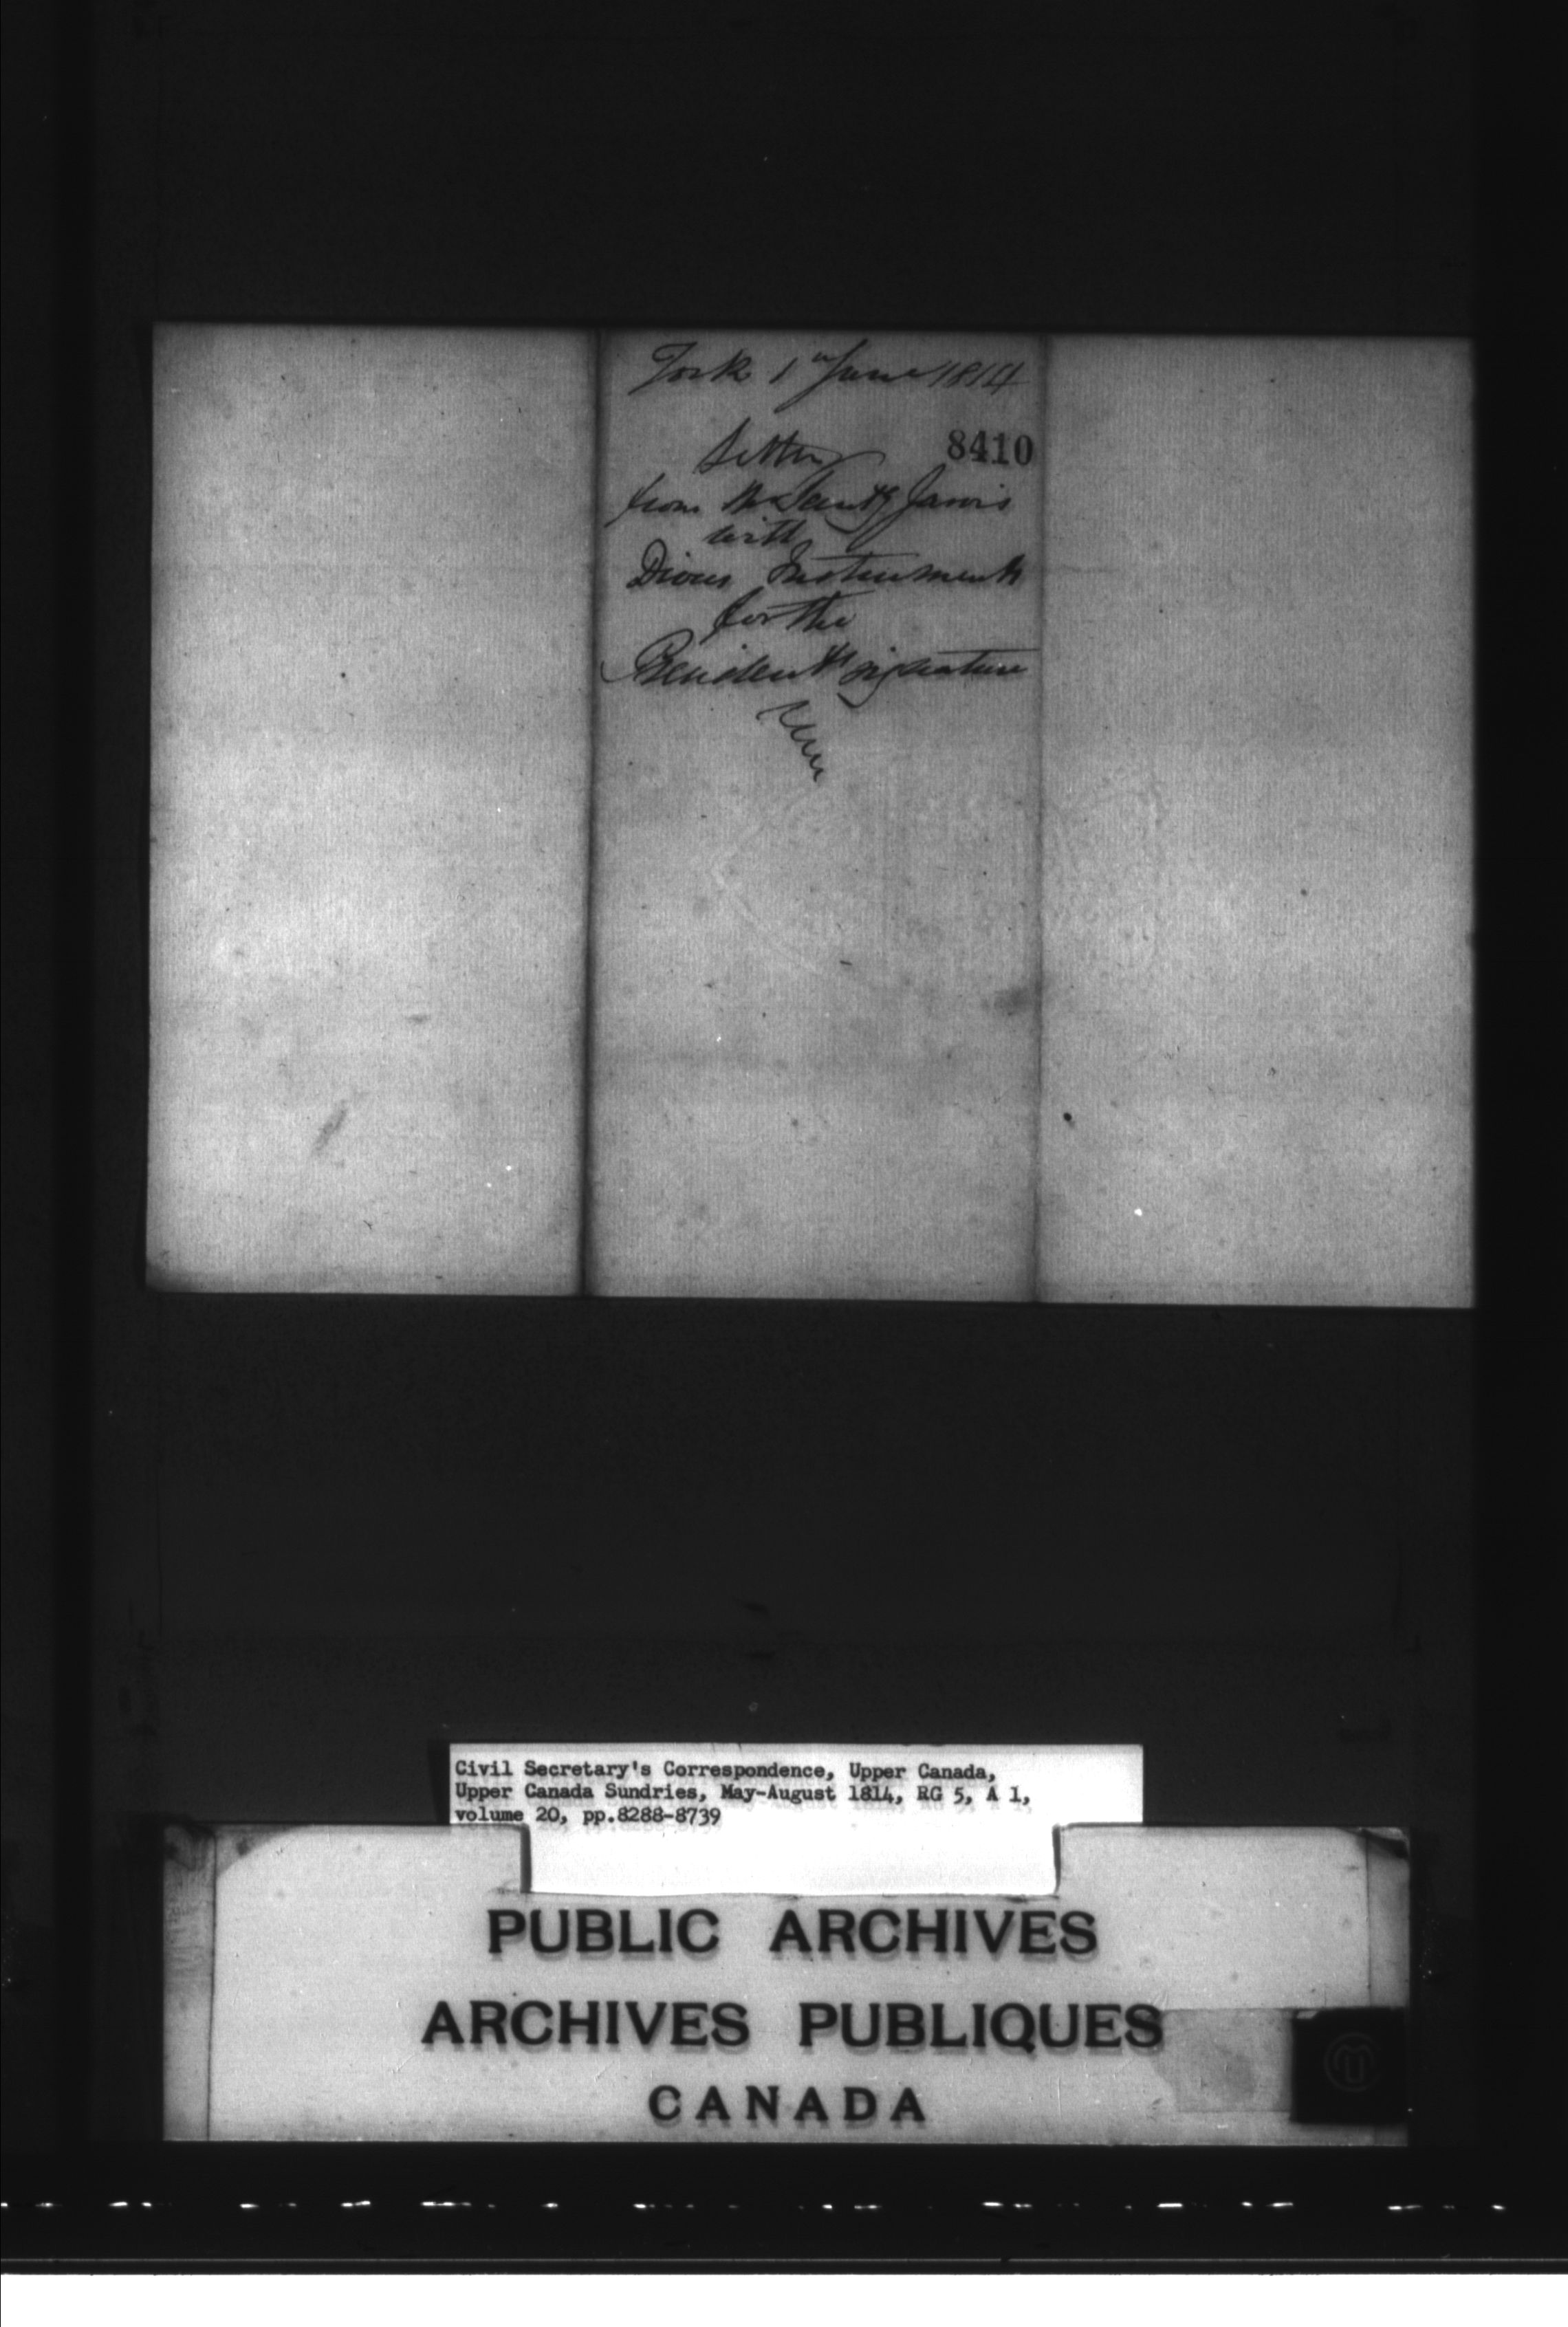 York 1st June 1814
8410
Letter
from Mr Secrty Jarvis
with
Divers Instruments
for the
Presidents signature
Civil Secretary's Correspondence, Upper Canada,
Upper Canada Sundries, May-August 1814, RG 5, A 1,
volume 20, pp.8288-8739
PUBLIC ARCHIVES
ARCHIVES PUBLIQUES
CANADA